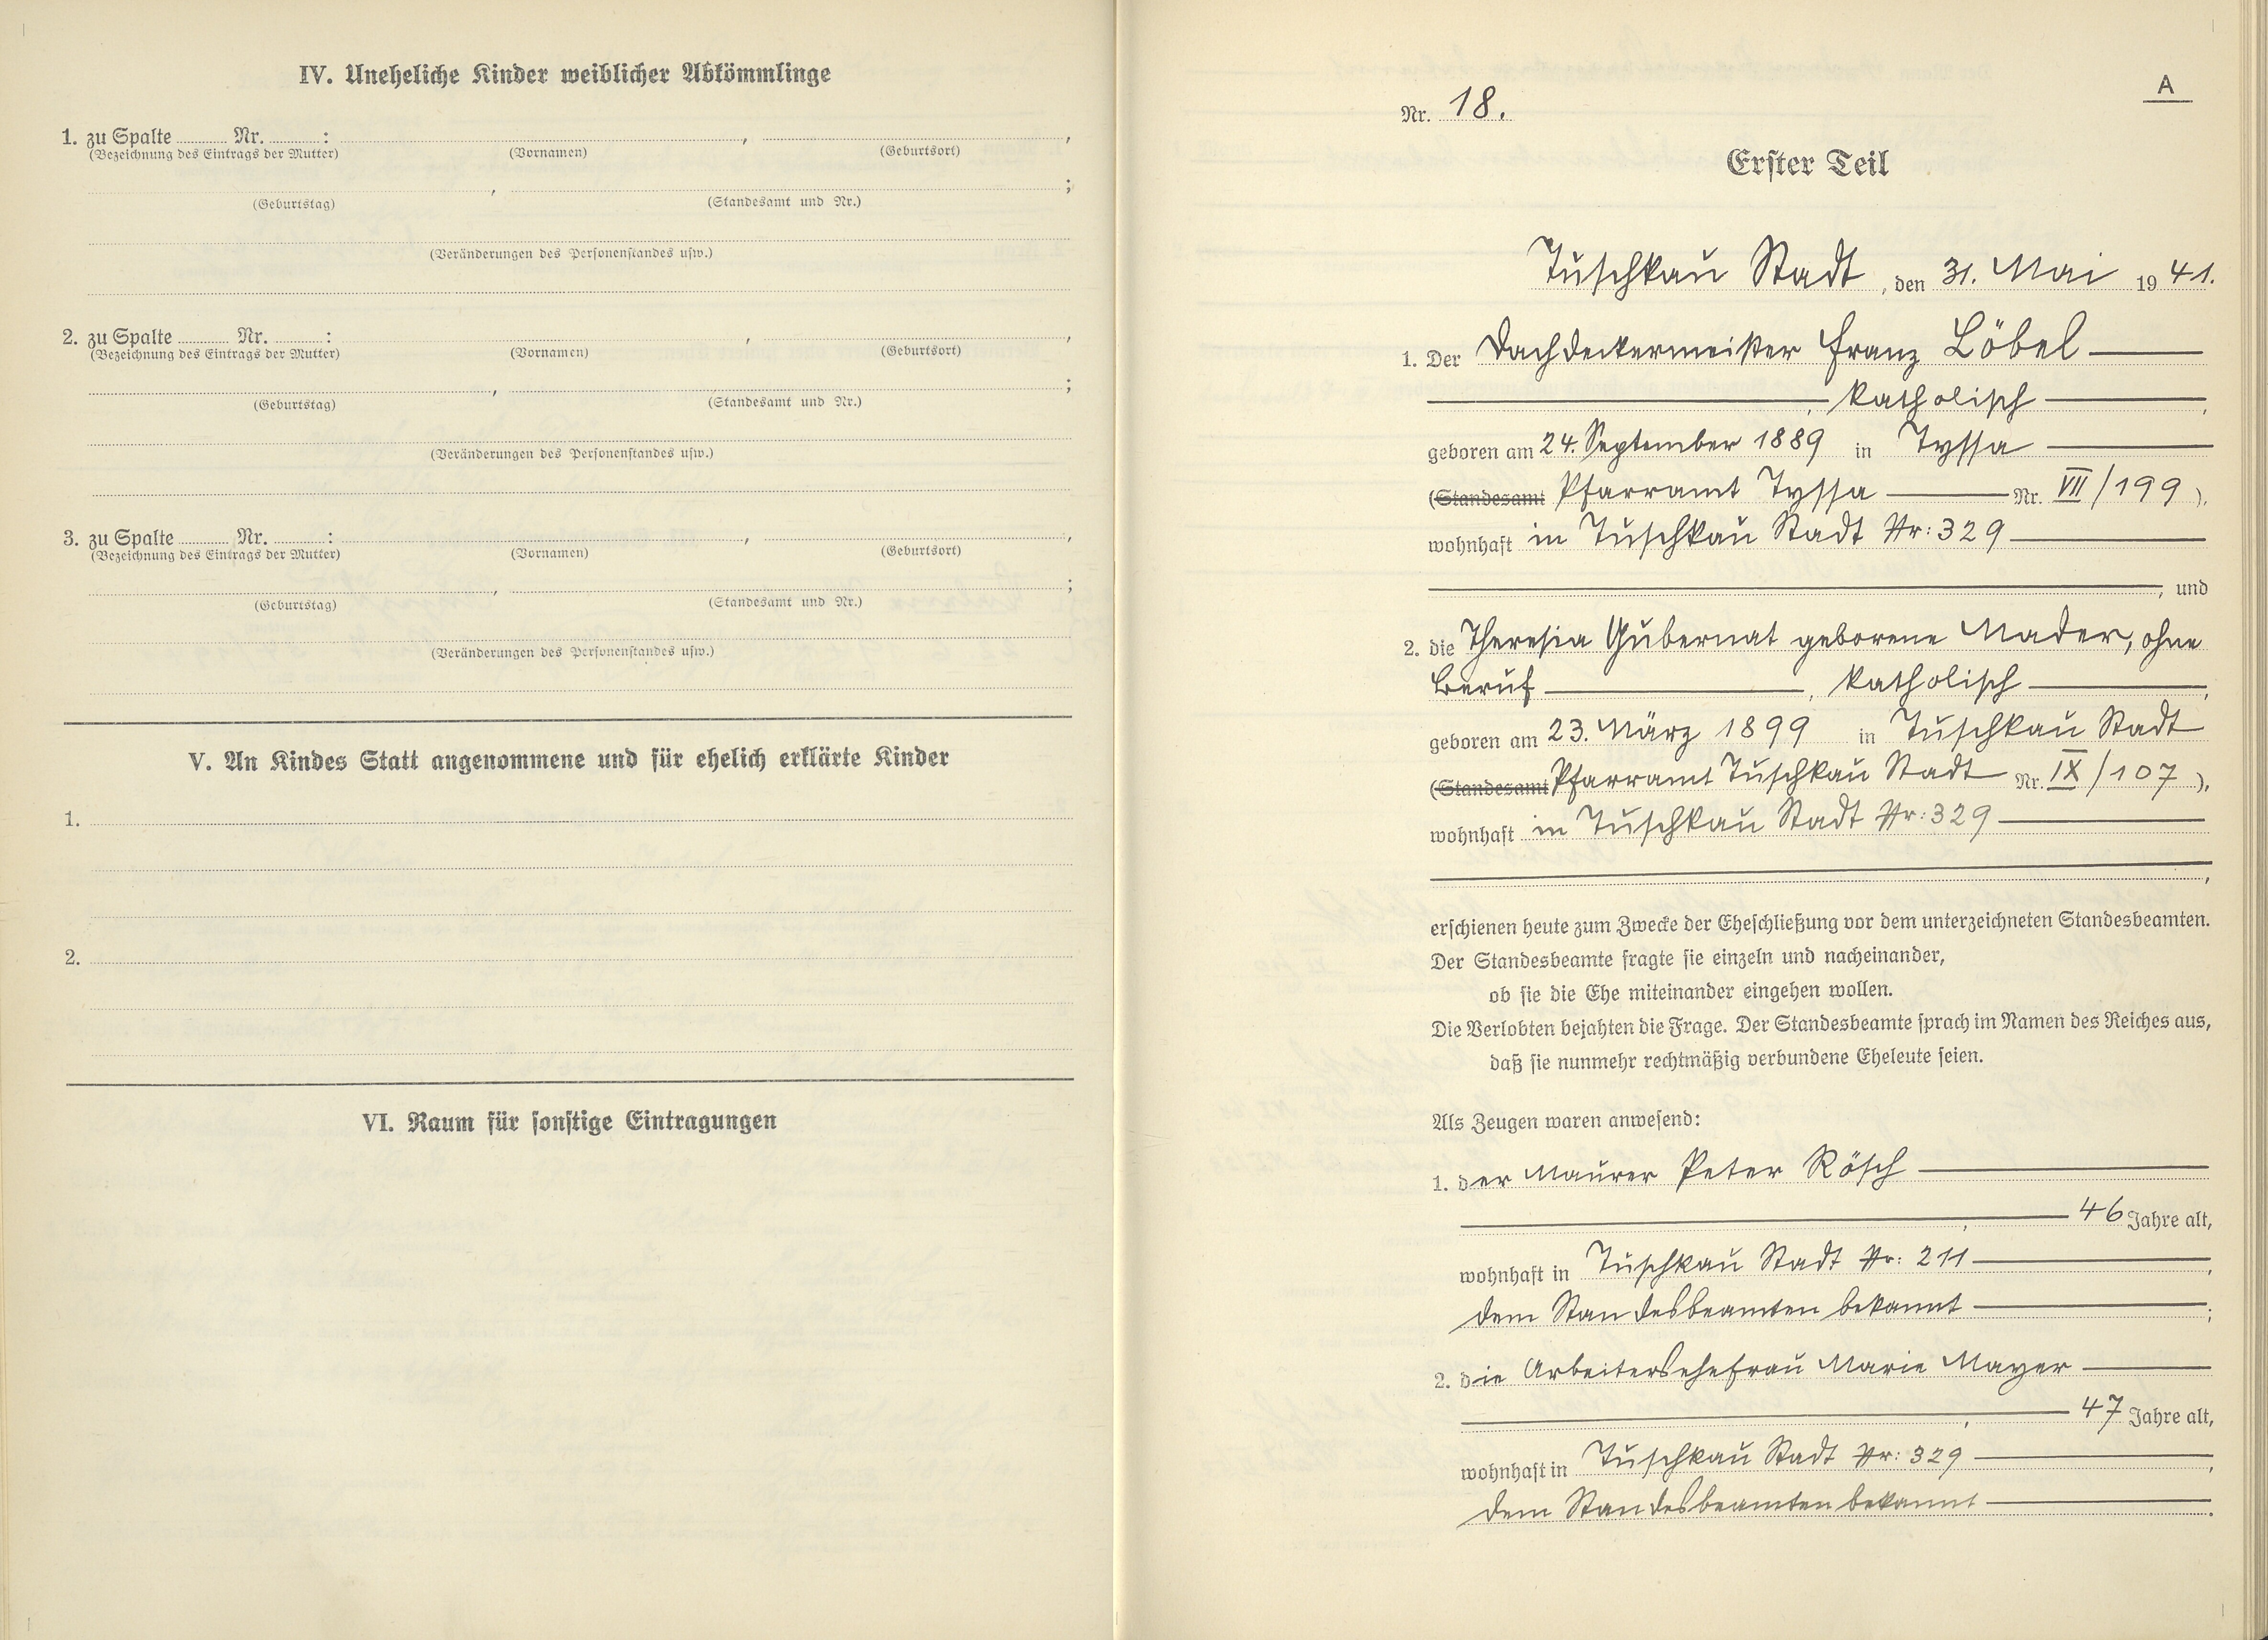 IV. Uneheliche Kinder weiblicher Abkömmlinge
1. zu Spalte ........ Nr. ........ : ........ , ........ ,
(Bezeichnung des Eintrags der Mutter) (Vornamen) (Geburtsort)
........ , ........ ;
(Geburtstag) (Standesamt und Nr.)
(Veränderungen des Personenstandes usw.)
2. zu Spalte ........ Nr. ........ : ........ , ........ ,
(Bezeichnung des Eintrags der Mutter) (Vornamen) (Geburtsort)
........ , ........ ;
(Geburtstag) (Standesamt und Nr.)
(Veränderungen des Personenstandes usw.)
3. zu Spalte ........ Nr. ........ : ........ , ........ ,
(Bezeichnung des Eintrags der Mutter) (Vornamen) (Geburtsort)
........ , ........ ;
(Geburtstag) (Standesamt und Nr.)
(Veränderungen des Personenstandes usw.)
V. An Kindes Statt angenommene und für ehelich erklärte Kinder
1.
2.
VI. Raum für sonstige Eintragungen
A
Nr. 18.
Erster Teil
Tuschkau Stadt, den 31. Mai 1941.
1. Der Dachdeckermeister Franz Löbel
, katholisch ,
geboren am 24. September 1889 in Tyssa
(Standesamt Pfarramt Tyssa Nr. VII/199),
wohnhaft in Tuschkau Stadt Nr: 329
, und
2. die Theresia Gubernat geborene Mader, ohne
Beruf , katholisch ,
geboren am 23. März 1899 in Tuschkau Stadt
(Standesamt Pfarramt Tuschkau Stadt Nr. IX/107),
wohnhaft in Tuschkau Stadt Nr: 329
,
erschienen heute zum Zwecke der Eheschließung vor dem unterzeichneten Standesbeamten.
Der Standesbeamte fragte sie einzeln und nacheinander,
ob sie die Ehe miteinander eingehen wollen.
Die Verlobten bejahten die Frage. Der Standesbeamte sprach im Namen des Reiches aus,
daß sie nunmehr rechtmäßig verbundene Eheleute seien.
Als Zeugen waren anwesend:
1. der Maurer Peter Rösch
, 46 Jahre alt,
wohnhaft in Tuschkau Stadt Nr: 211 ,
dem Standesbeamten bekannt ;
2. die Arbeitersehefrau Marie Mayer
, 47 Jahre alt,
wohnhaft in Tuschkau Stadt Nr: 329 ,
dem Standesbeamten bekannt .